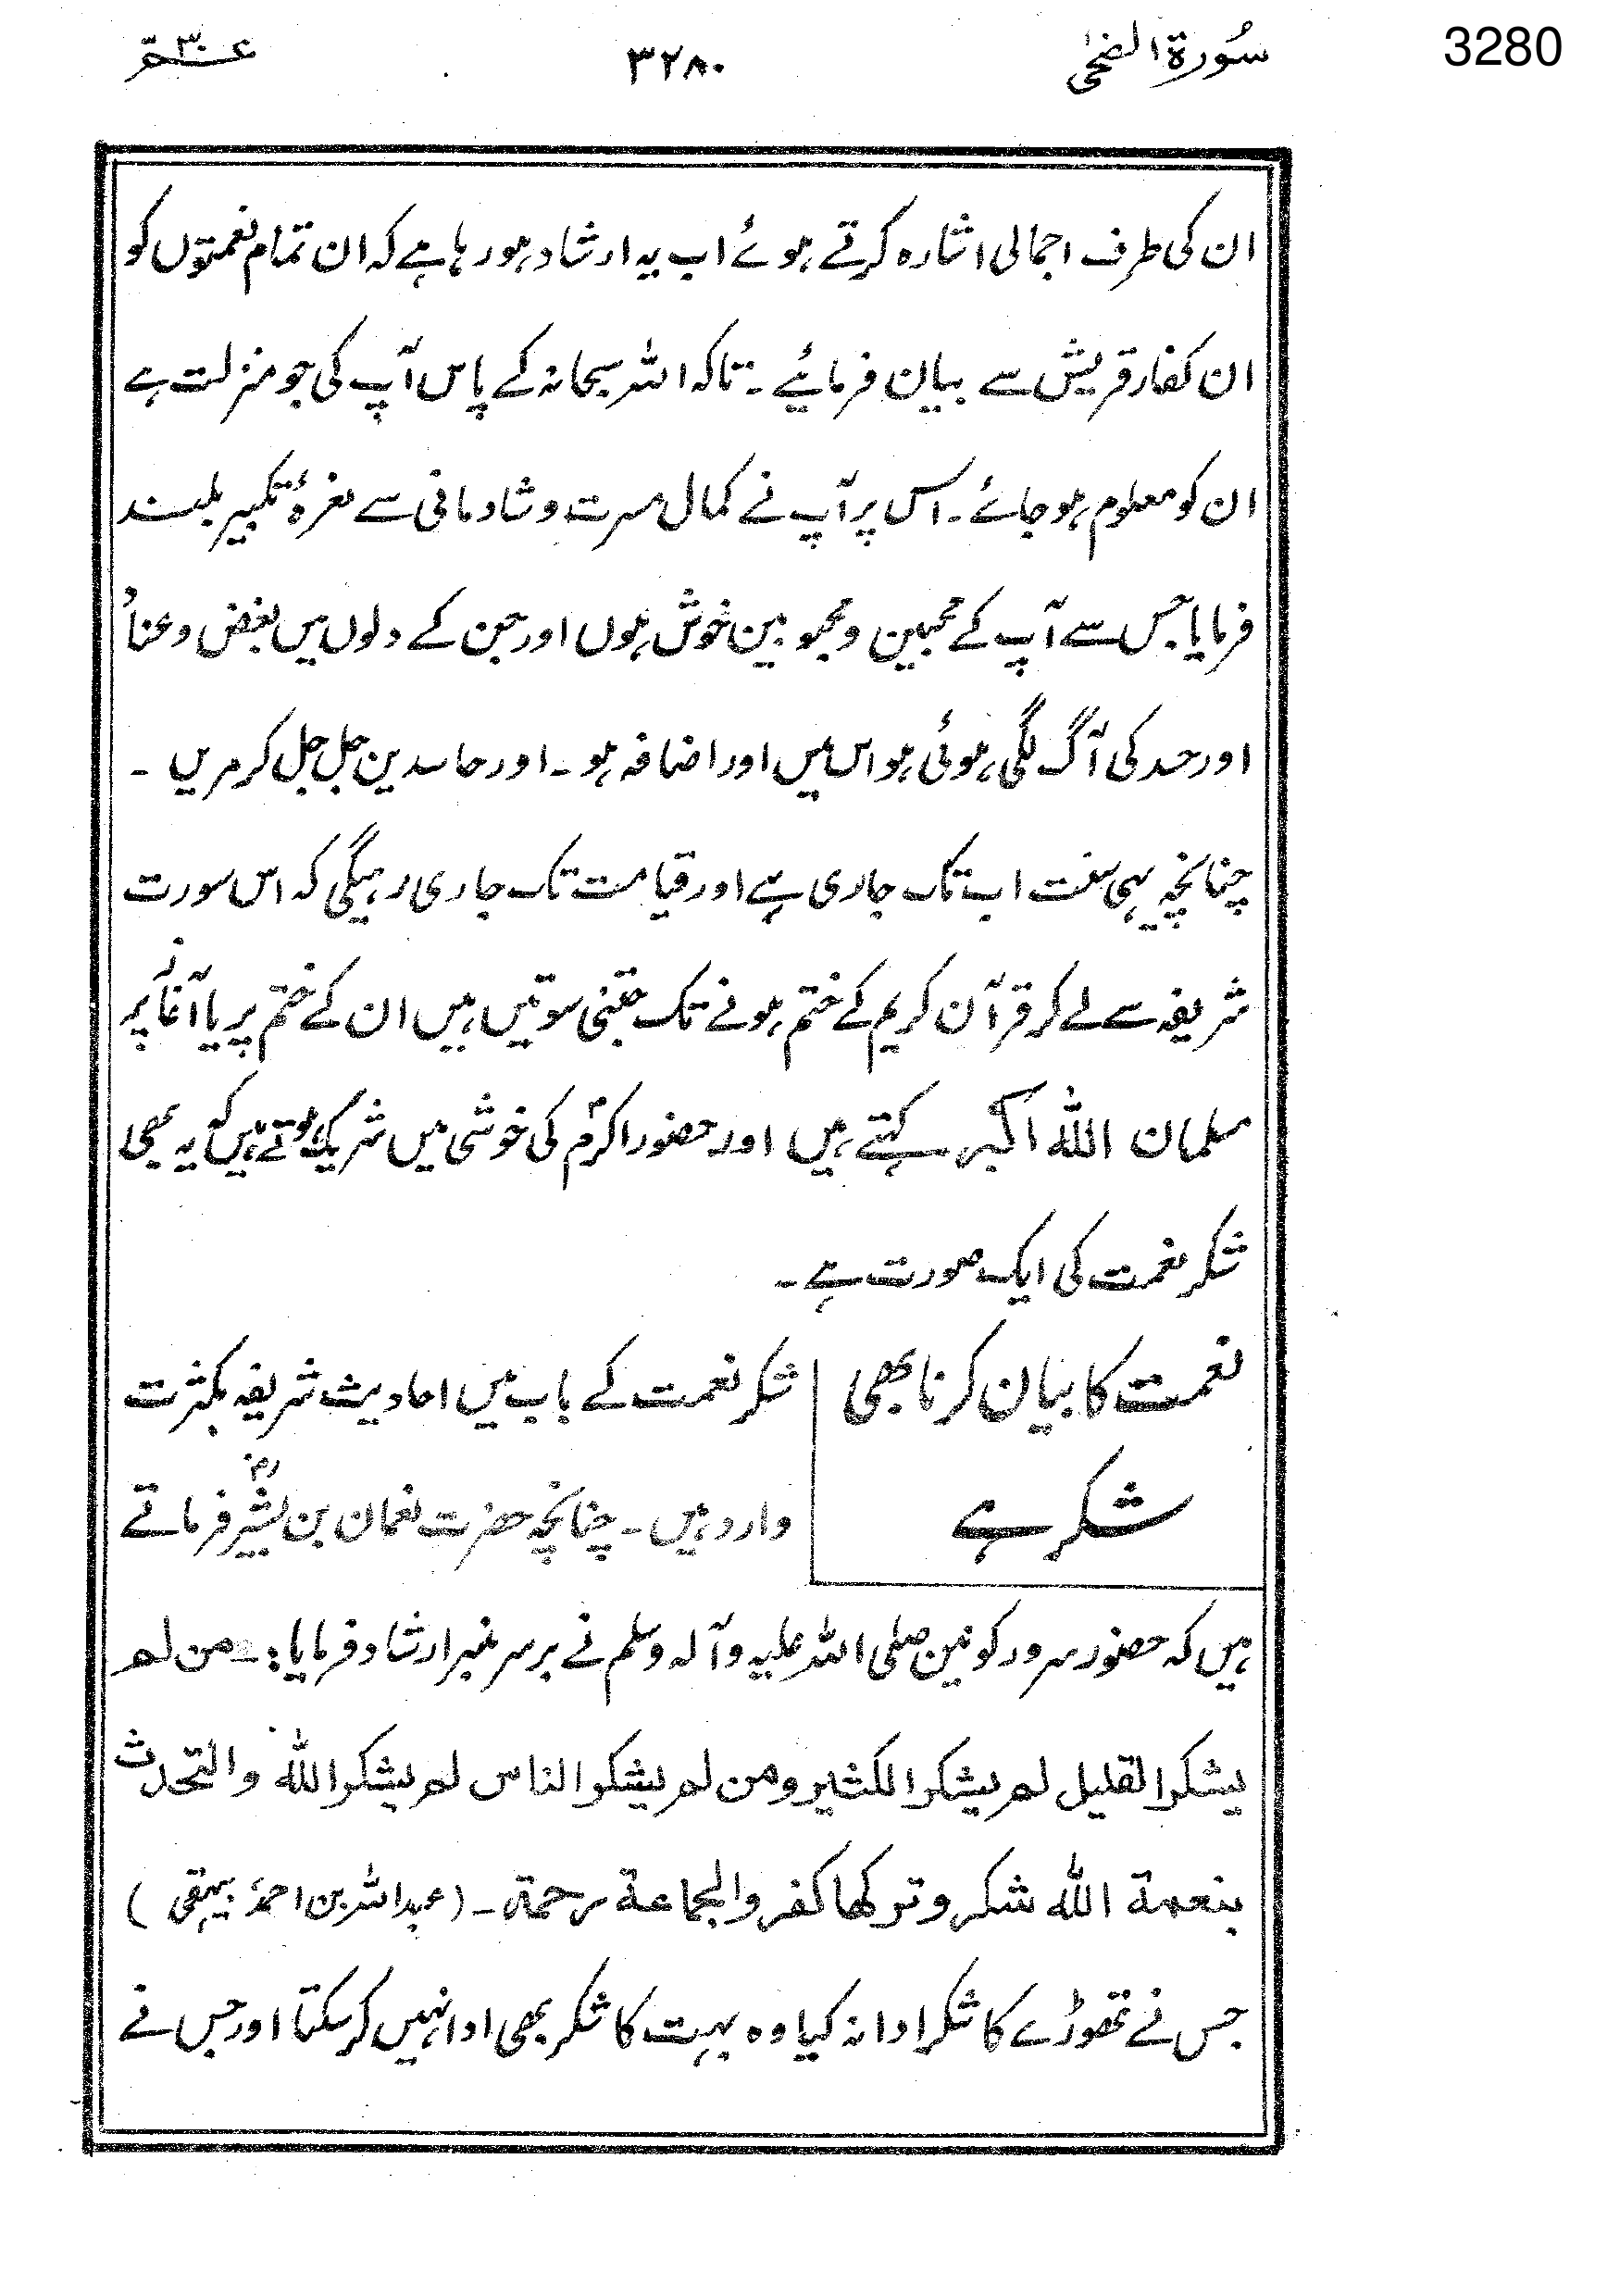 3280
سُورة الضحٰی ۳۲۸۰ عـــمّ ۳۰
ان کی طرف اجمالی اشارہ کرتے ہوئے اب یہ ارشاد ہو رہا ہے کہ ان تمام نعمتوں کو
ان کفار قریش سے بیان فرمائیے ۔ تاکہ اللہ سبحانہ کے پاس آپ کی جو منزلت ہے
ان کو معلوم ہو جائے ۔ اس پر آپ نے کمال مسرت و شادمانی سے نعرۂ تکبیر بلند
فرمایا جس سے آپ کے محبین و محبوبین خوش ہوں اور جن کے دلوں میں بغض و عناد
اور حسد کی آگ لگی ہوئی ہو اس میں اور اضافہ ہو ۔ اور حاسدین جل جل کر مریں ۔
چنانچہ یہی سنت اب تک جاری ہے اور قیامت تک جاری رہیگی کہ اس سورت
شریفہ سے لے کر قرآن کریم کے ختم ہونے تک جتنی سورتیں ہیں ان کے ختم پر یا آغاز پر
مسلمان اللہ اکبر کہتے ہیں اور حضور اکرمؐ کی خوشی میں شریک ہوتے ہیں کہ یہ بھی
شکر نعمت کی ایک صورت ہے ۔
نعمت کا بیان کرنا بھی
شکر ہے
شکر نعمت کے باب میں احادیث شریفہ بکثرت
وارد ہیں ۔ چنانچہ حضرت نعمان بن بشیرؓ فرماتے
ہیں کہ حضور سرور کونین صلی اللہ علیہ وآلہ وسلم نے برسر منبر ارشاد فرمایا :۔ من لم
یشکر القلیل لم یشکر الکثیر ومن لم یشکر الناس لم یشکر اللہ والتحدث
بنعمة اللہ شکر وترکھا کفر والجماعة رحمة ۔ (عبداللہ بن احمدؒ بیہقی )
جس نے تھوڑے کا شکر ادا نہ کیا وہ بہت کا شکر بھی ادا نہیں کر سکتا اور جس نے